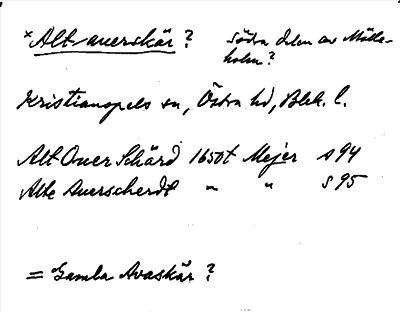 *Alt-auerskär? Södra delen av Mölle-
holm?
Kristianopels sn, Östra hd, Blek. l.
Alt Ouer Schärd 1650t Mejer s 94
Alte Auerscherdt " " s 95
= Gamla Avaskär?